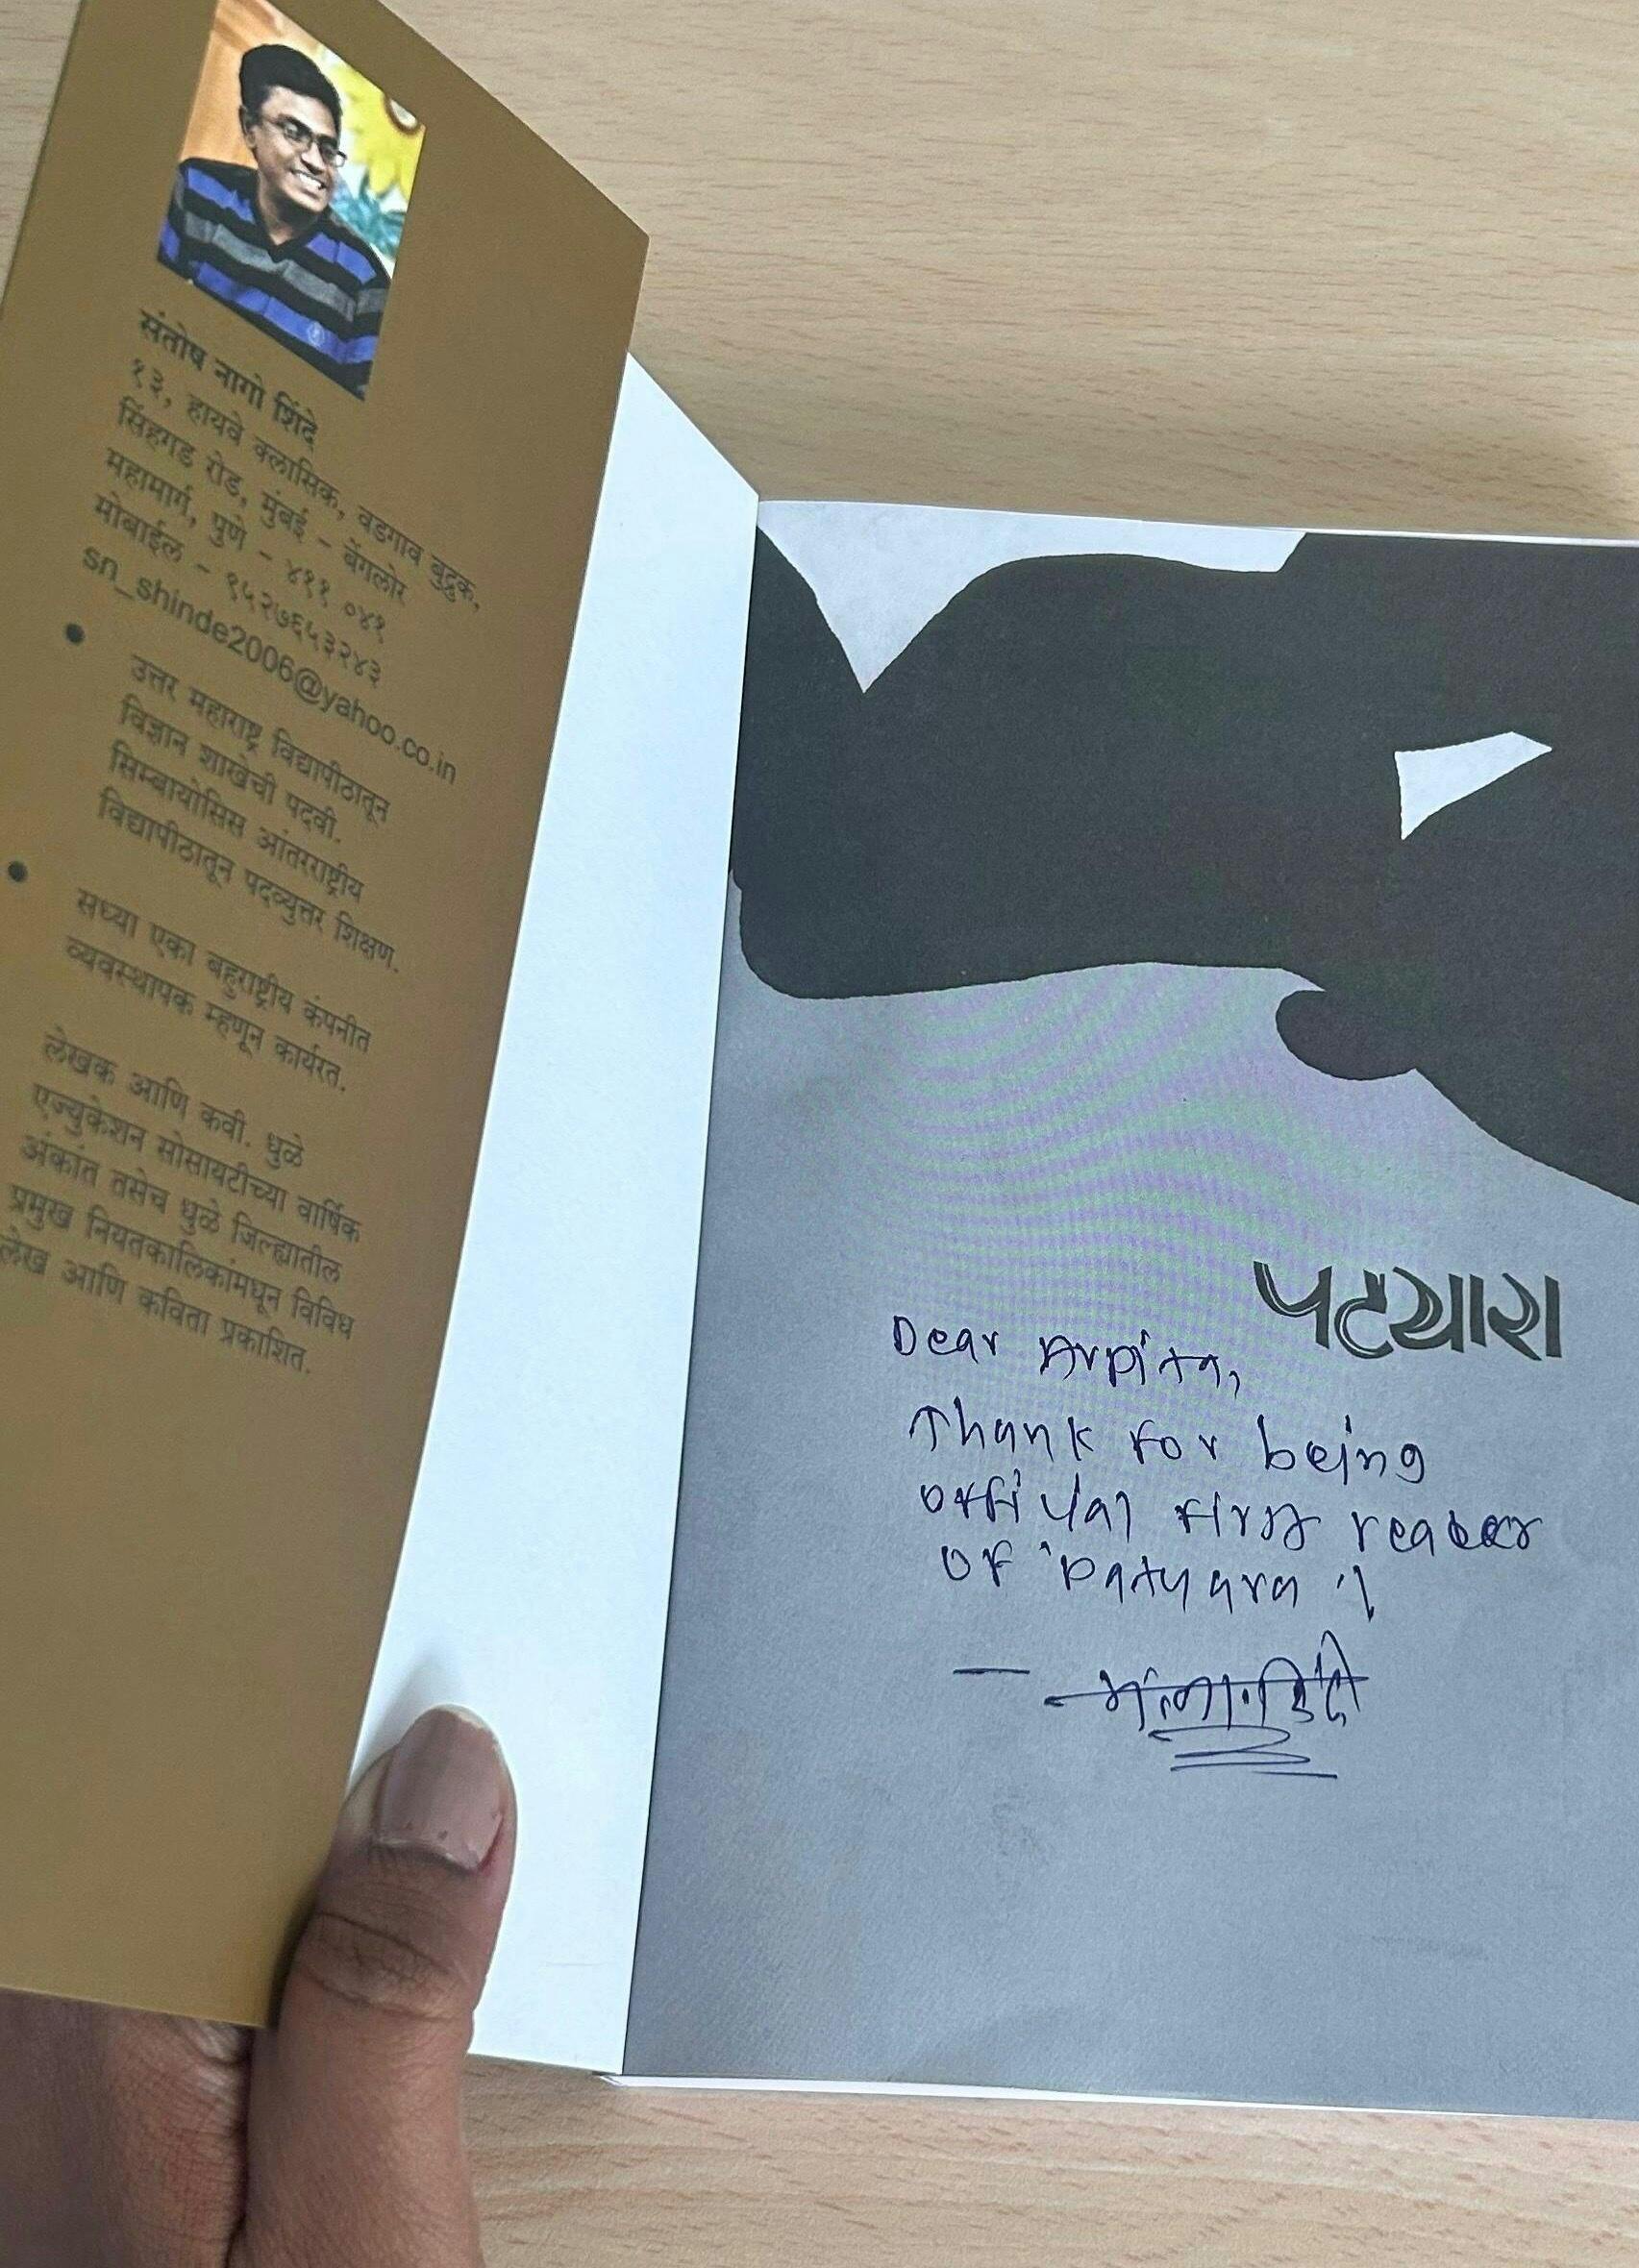 संतोष नागो शिंदे
१३, हायवे क्लासिक, वडगाव बुद्रुक,
सिंहगड रोड, मुंबई – बेंगलोर
महामार्ग, पुणे – ४११ ०४१
मोबाईल – ९५२७६५३२४३
sn_shinde2006@yahoo.co.in
• उत्तर महाराष्ट्र विद्यापीठातून
विज्ञान शाखेची पदवी.
सिम्बायोसिस आंतरराष्ट्रीय
विद्यापीठातून पदव्युत्तर शिक्षण.
• सध्या एका बहुराष्ट्रीय कंपनीत
व्यवस्थापक म्हणून कार्यरत.
लेखक आणि कवी. धुळे
एज्युकेशन सोसायटीच्या वार्षिक
अंकांत तसेच धुळे जिल्ह्यातील
प्रमुख नियतकालिकांमधून विविध
लेख आणि कविता प्रकाशित.
पटयारा
Dear Arpita,
Thank for being
official first reader
of 'Patyara'!